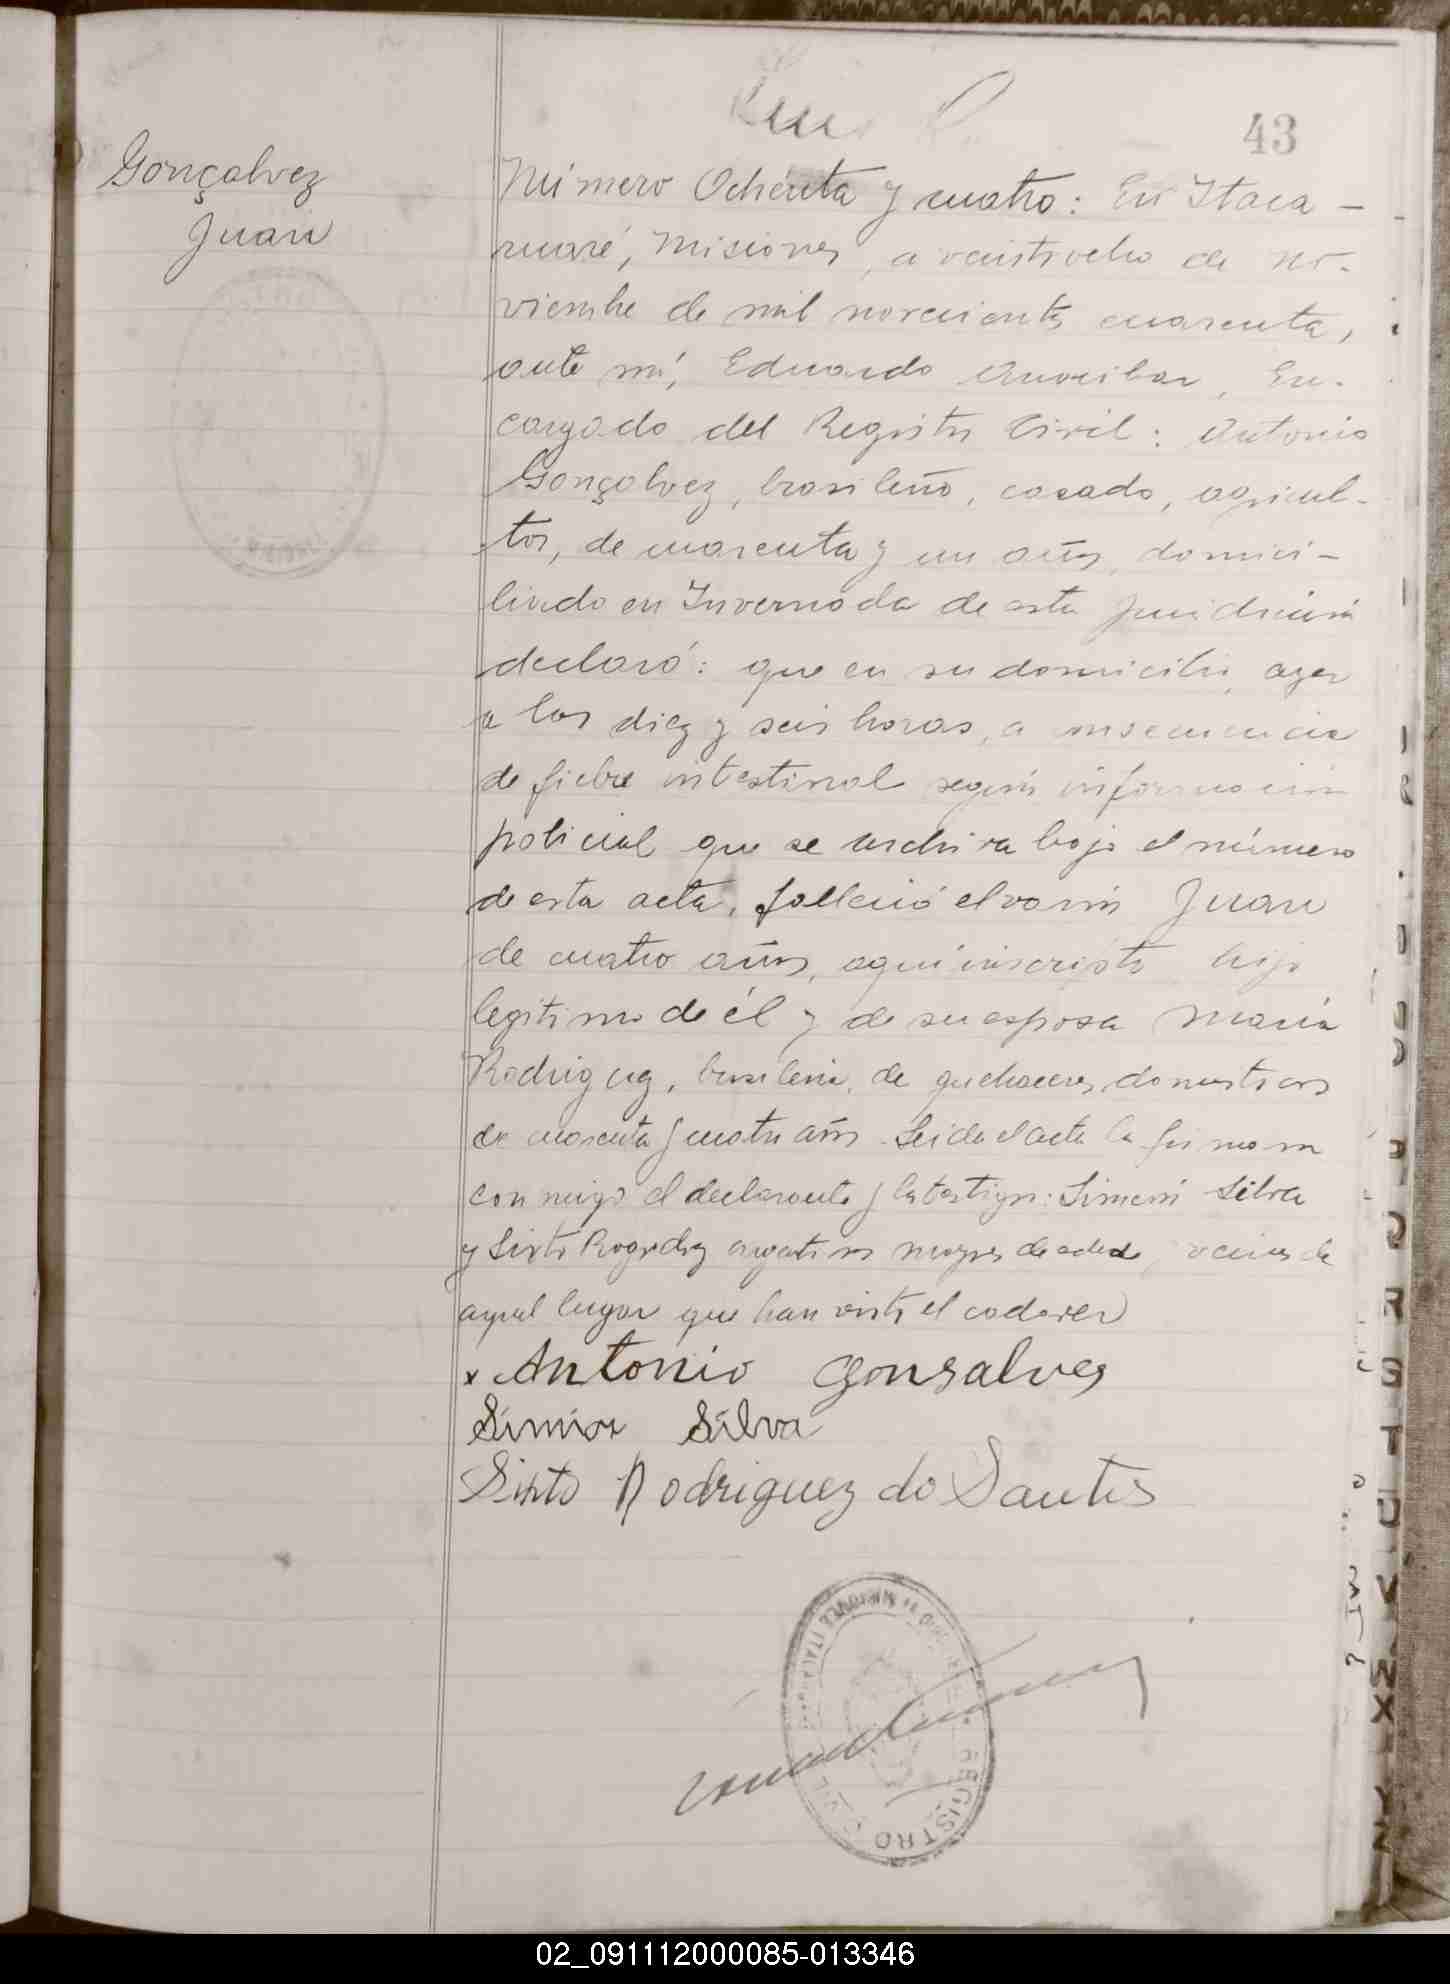 43
Gonçalvez
Juan
Número Ochenta y cuatro: En Itaca-
ruaré, Misiones, a veintiocho de no-
viembre de mil novecientos cuarenta,
ante mí, Eduardo En-
cargado del Registro Civil: Antonio
Gonçalvez, brasileño, casado, agricul-
tor, de cuarenta y un años, domici-
liado en Invernada de esta jurisdicción
declaró: que en su domicilio, ayer
a las diez y seis horas, a consecuencia
de fiebre intestinal según información
policial que se archiva bajo el número
de esta acta, falleció el varón Juan
de cuatro años, aquí inscripto hijo
legítimo de él y de su esposa María
Rodriguez, brasileña, de quehaceres domesticos
de cuarenta y cuatro años. Leida el acta la firmaron
con migo el declarante y los testigos: Simeón Silva
y Sixto Rogriduez argentinos mayores de edad, vecinos de
aquel lugar que han visto el cadaver
x Antonio Gonsalves
Simion Silva
Sixto Rodriguez do Santos
REGISTRO CIVIL
02_091112000085-013346